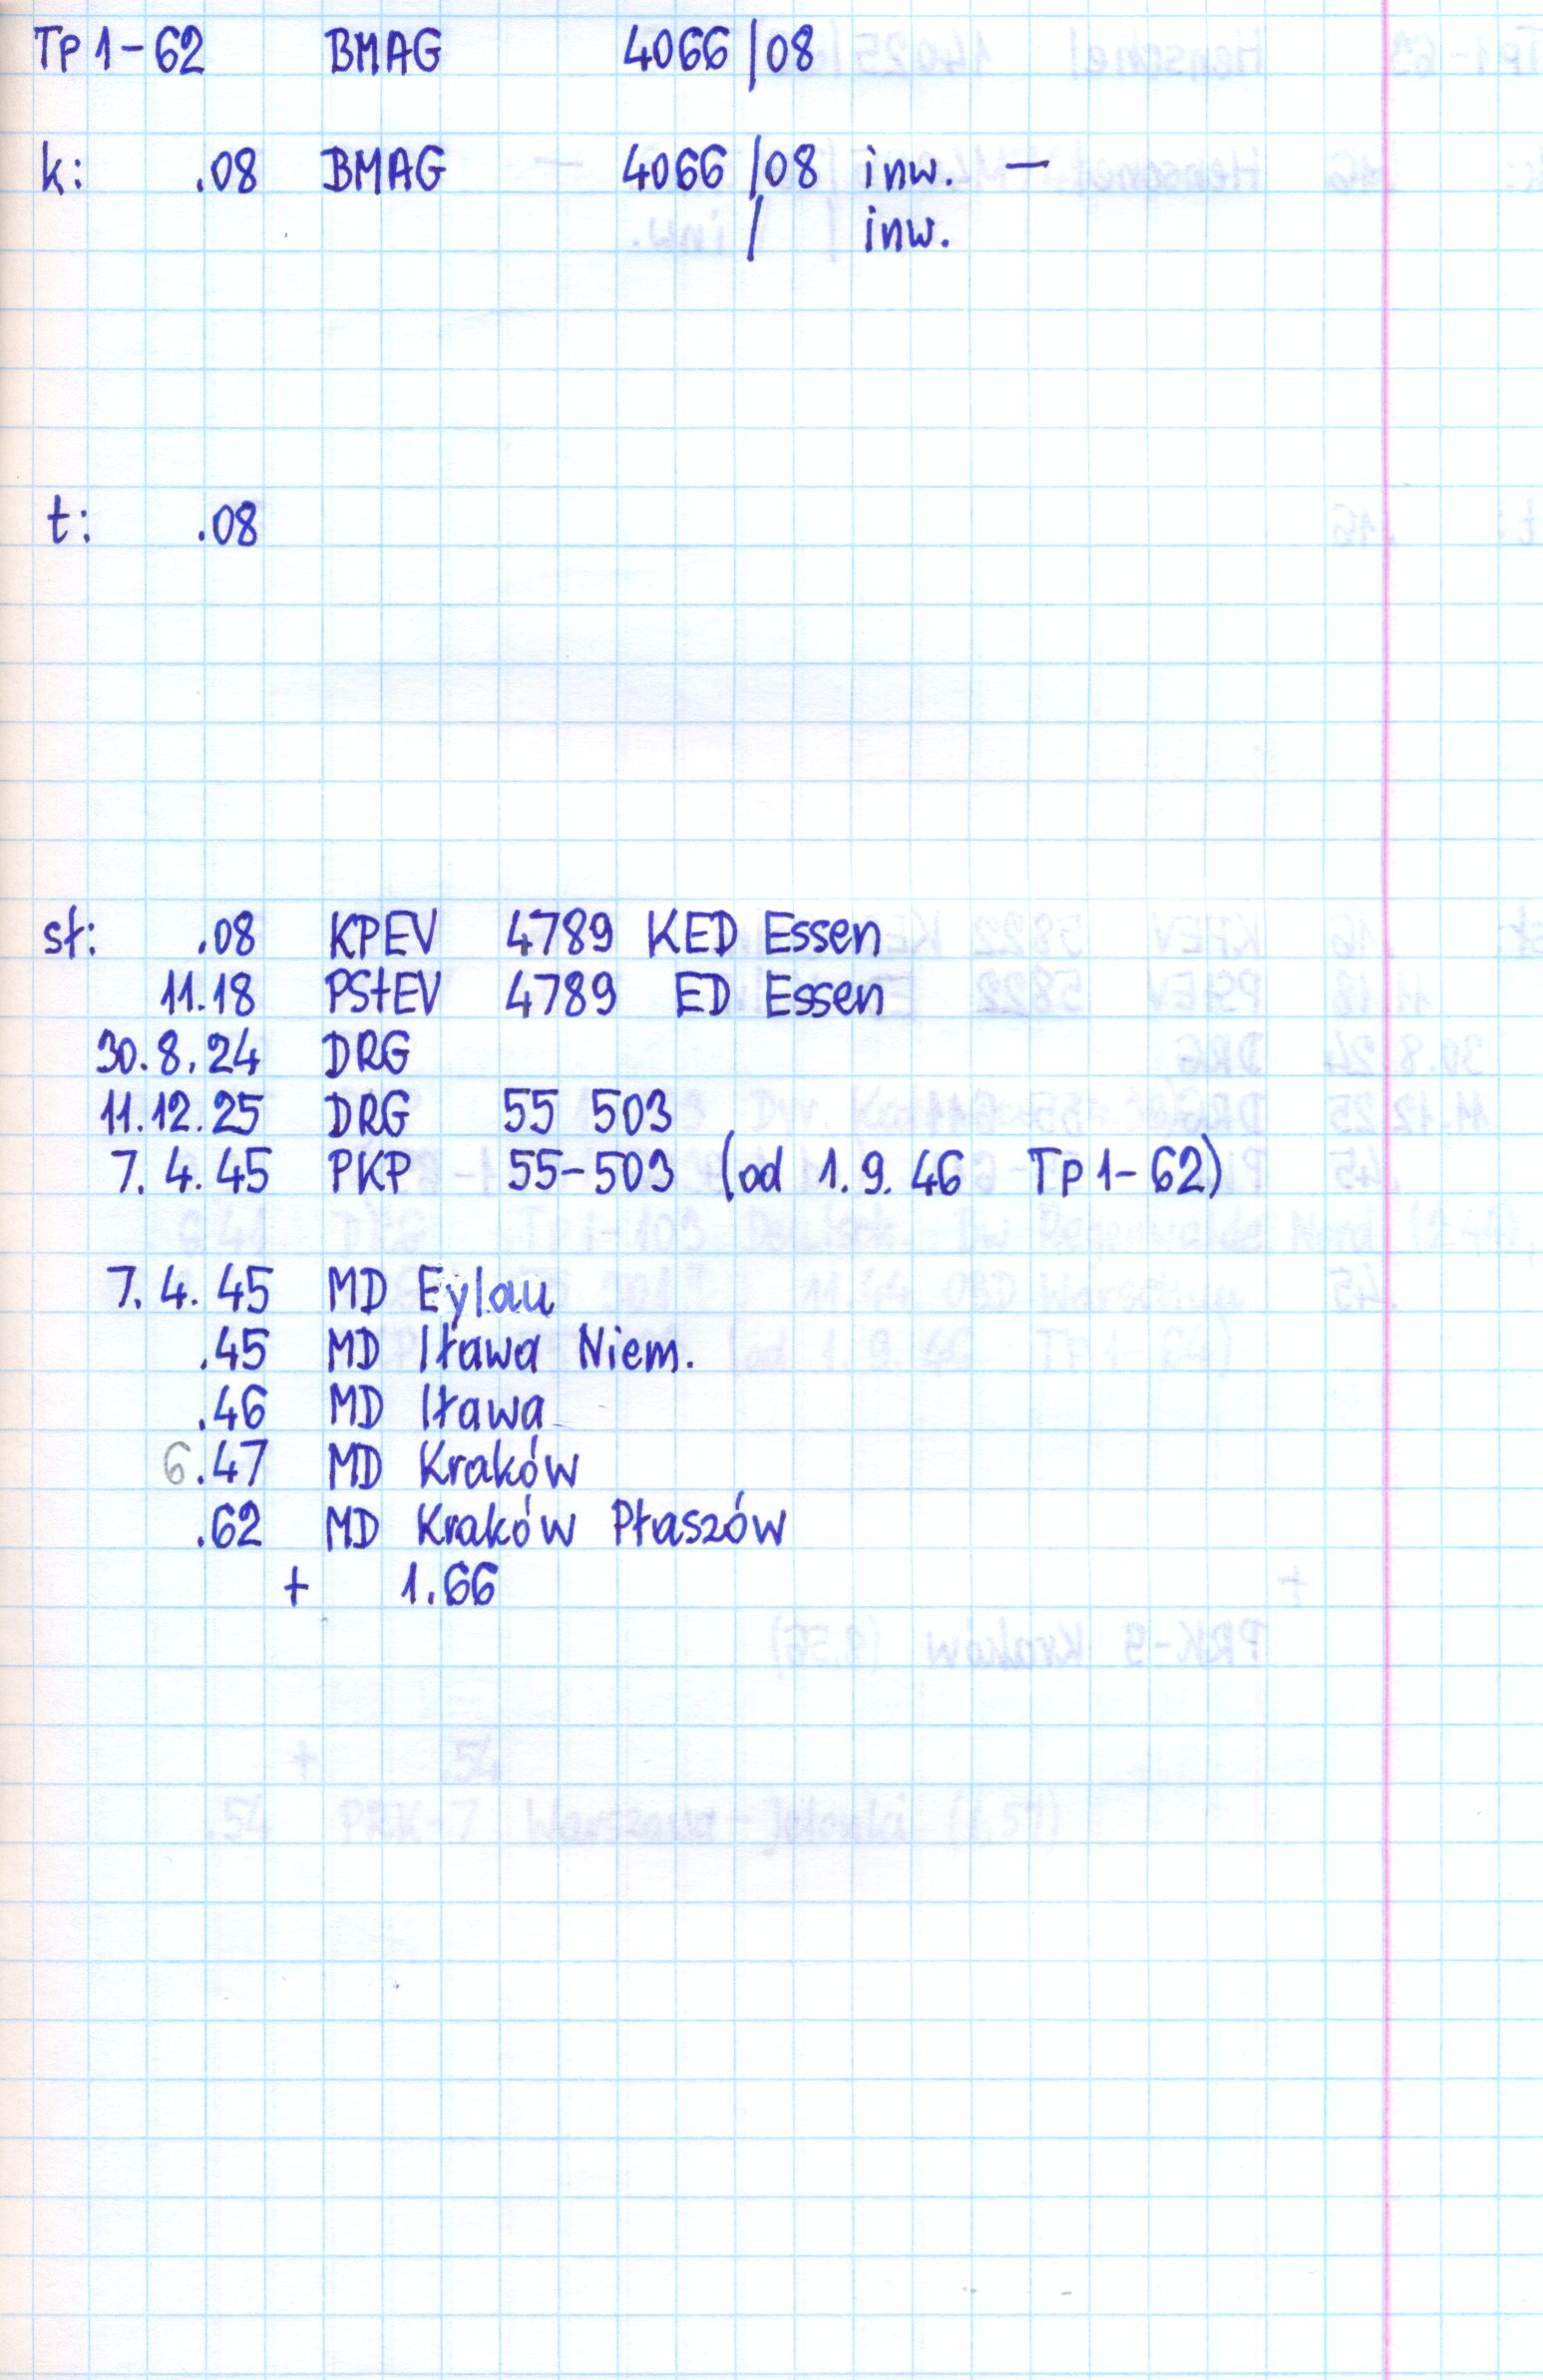 Tp 1-62 BMAG 4066/08
k: .08 BMAG 4066/08 inw. —
/ inw.
t: .08
st: .08 KPEV 4789 KED Essen
11.18 PStEV 4789 ED Essen
30.8.24 DRG
11.12.25 DRG 55 503
7.4.45 PKP 55-503 (od 1.9.46 Tp 1-62)
7.4.45 MD Eylau
.45 MD Iława Niem.
.46 MD Iława
6.47 MD Kraków
.62 MD Kraków Płaszów
+ 1.66